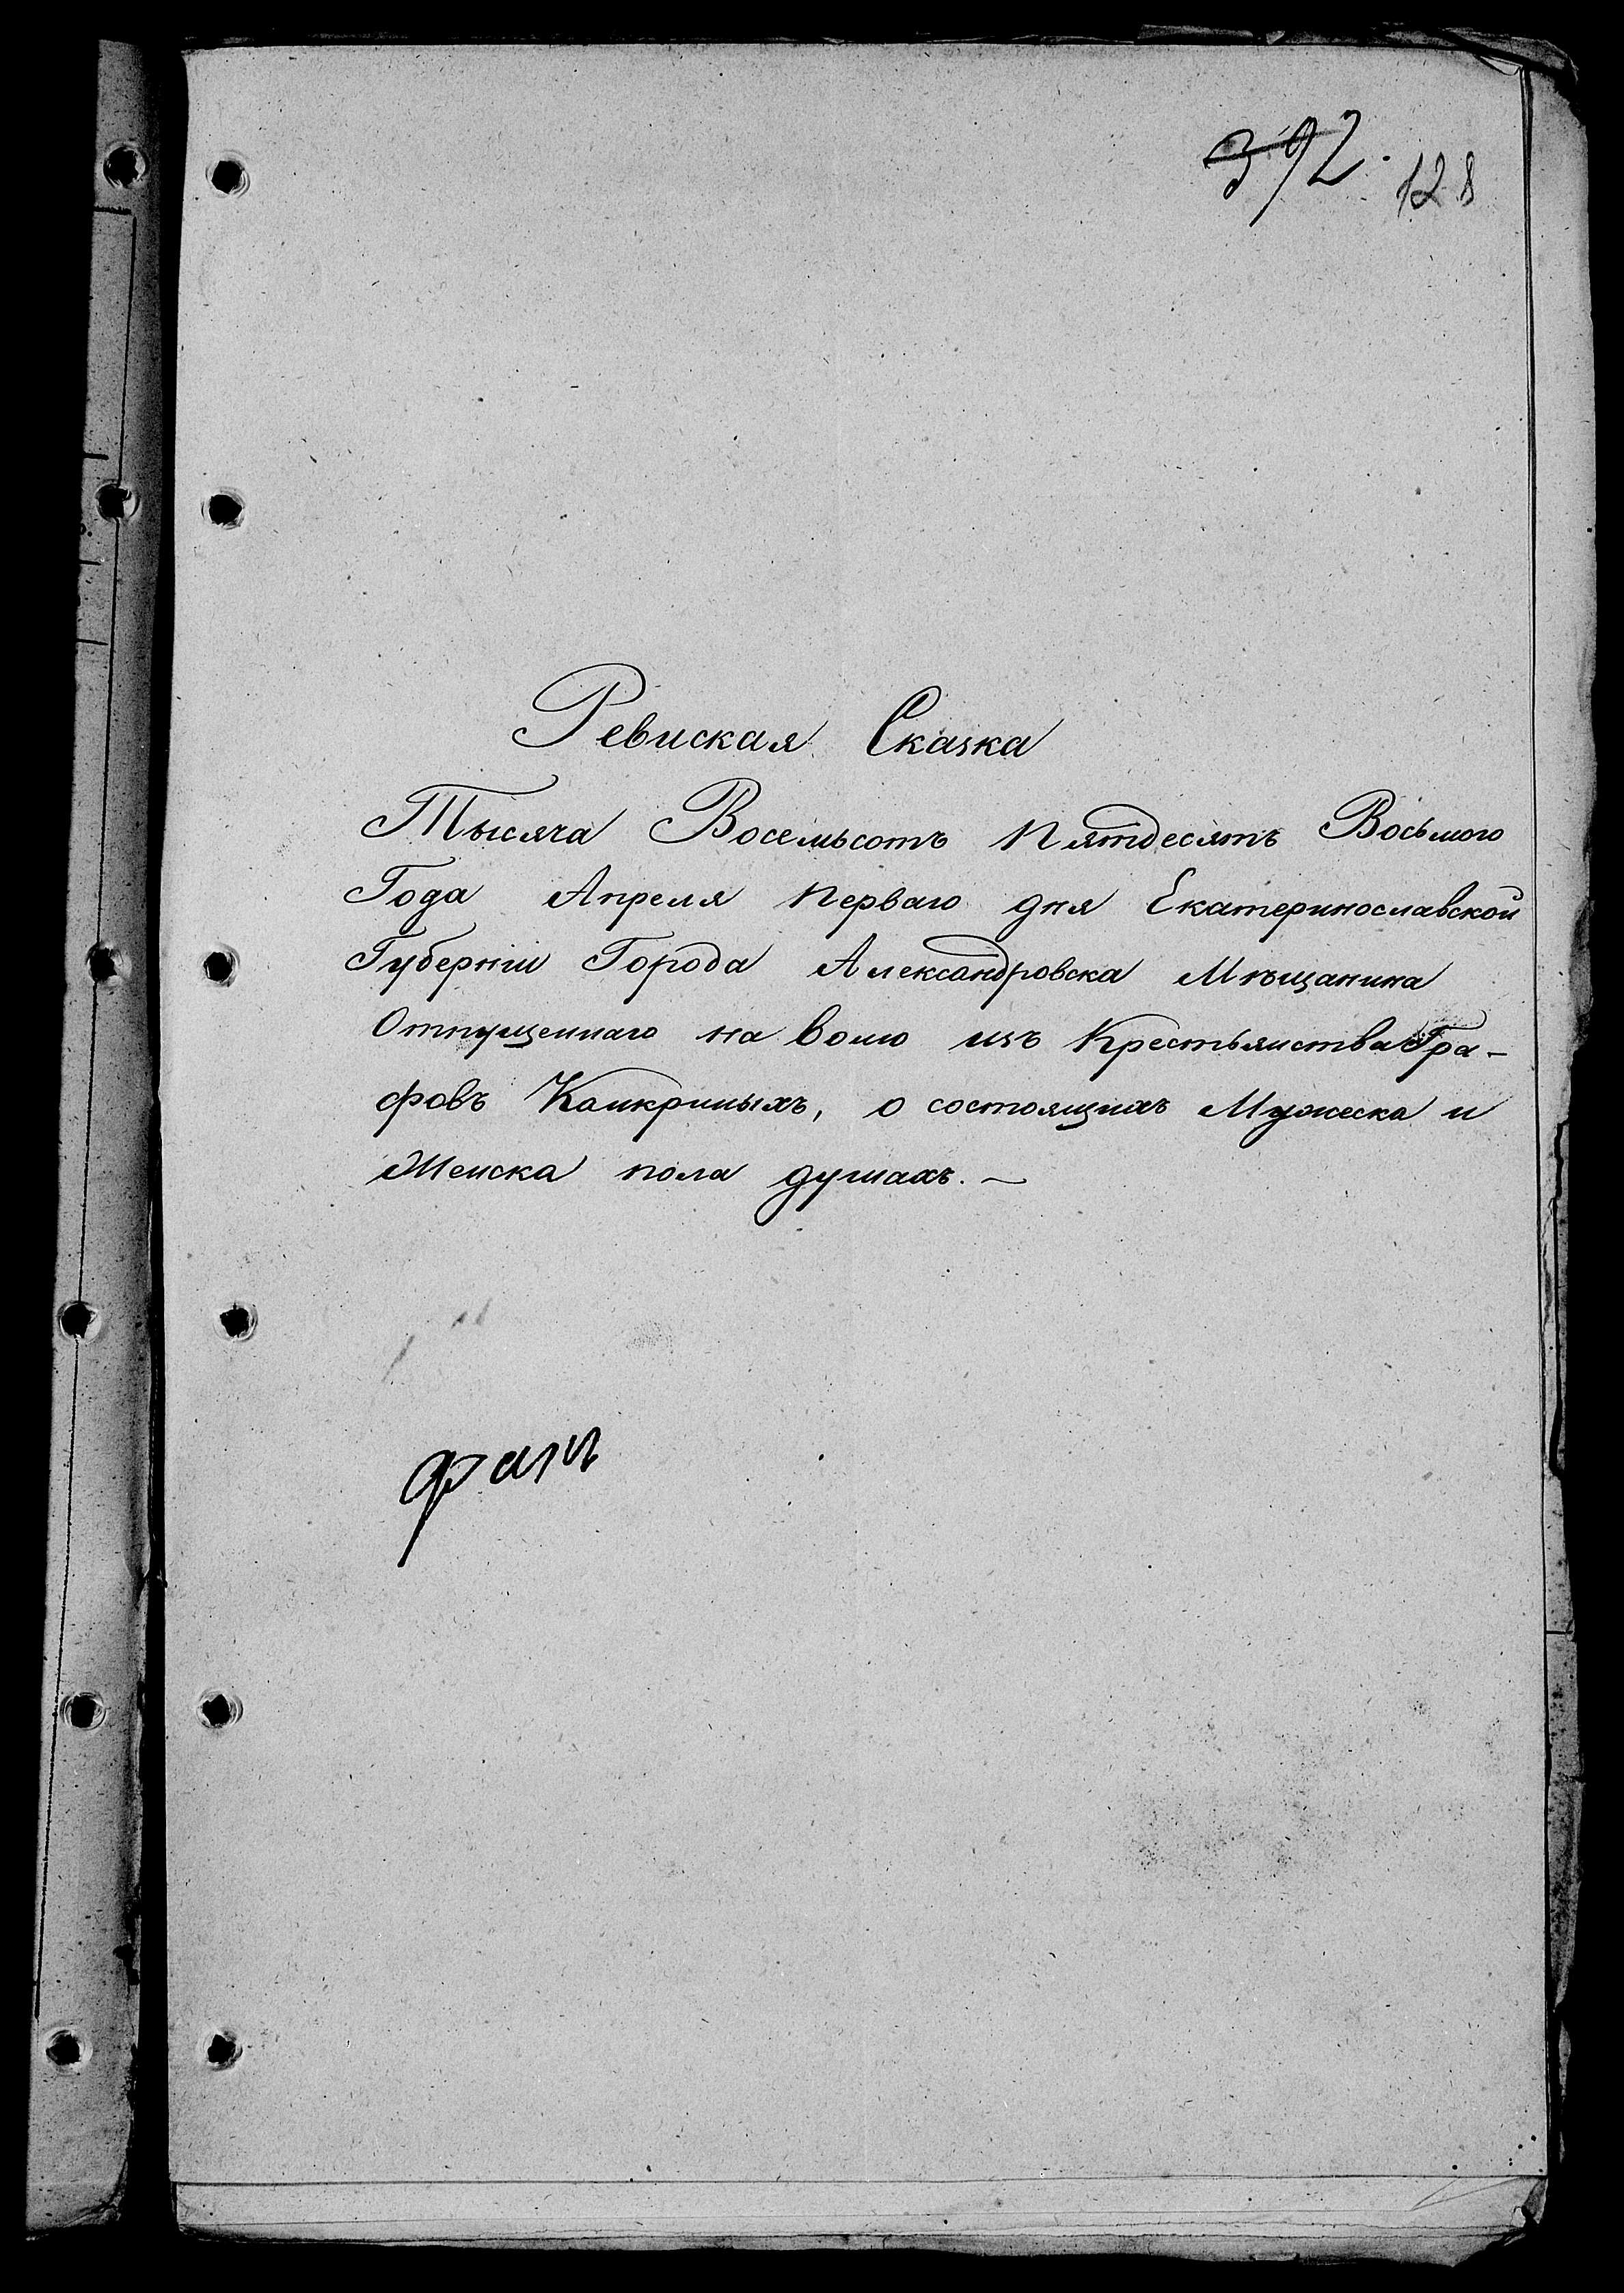 392. 128
Ревиская Сказка
Тысяча Восемьсотъ Пятдесятъ Восьмого
Года Апреля Перваго дня Екатеринославской
Губерніи Города Александровска Мѣщанина
Отпущеннаго на волю изъ Крестьянства Гра-
фовъ Канкриныхъ, о состоящихъ Мужеска и
Женска пола душахъ. —